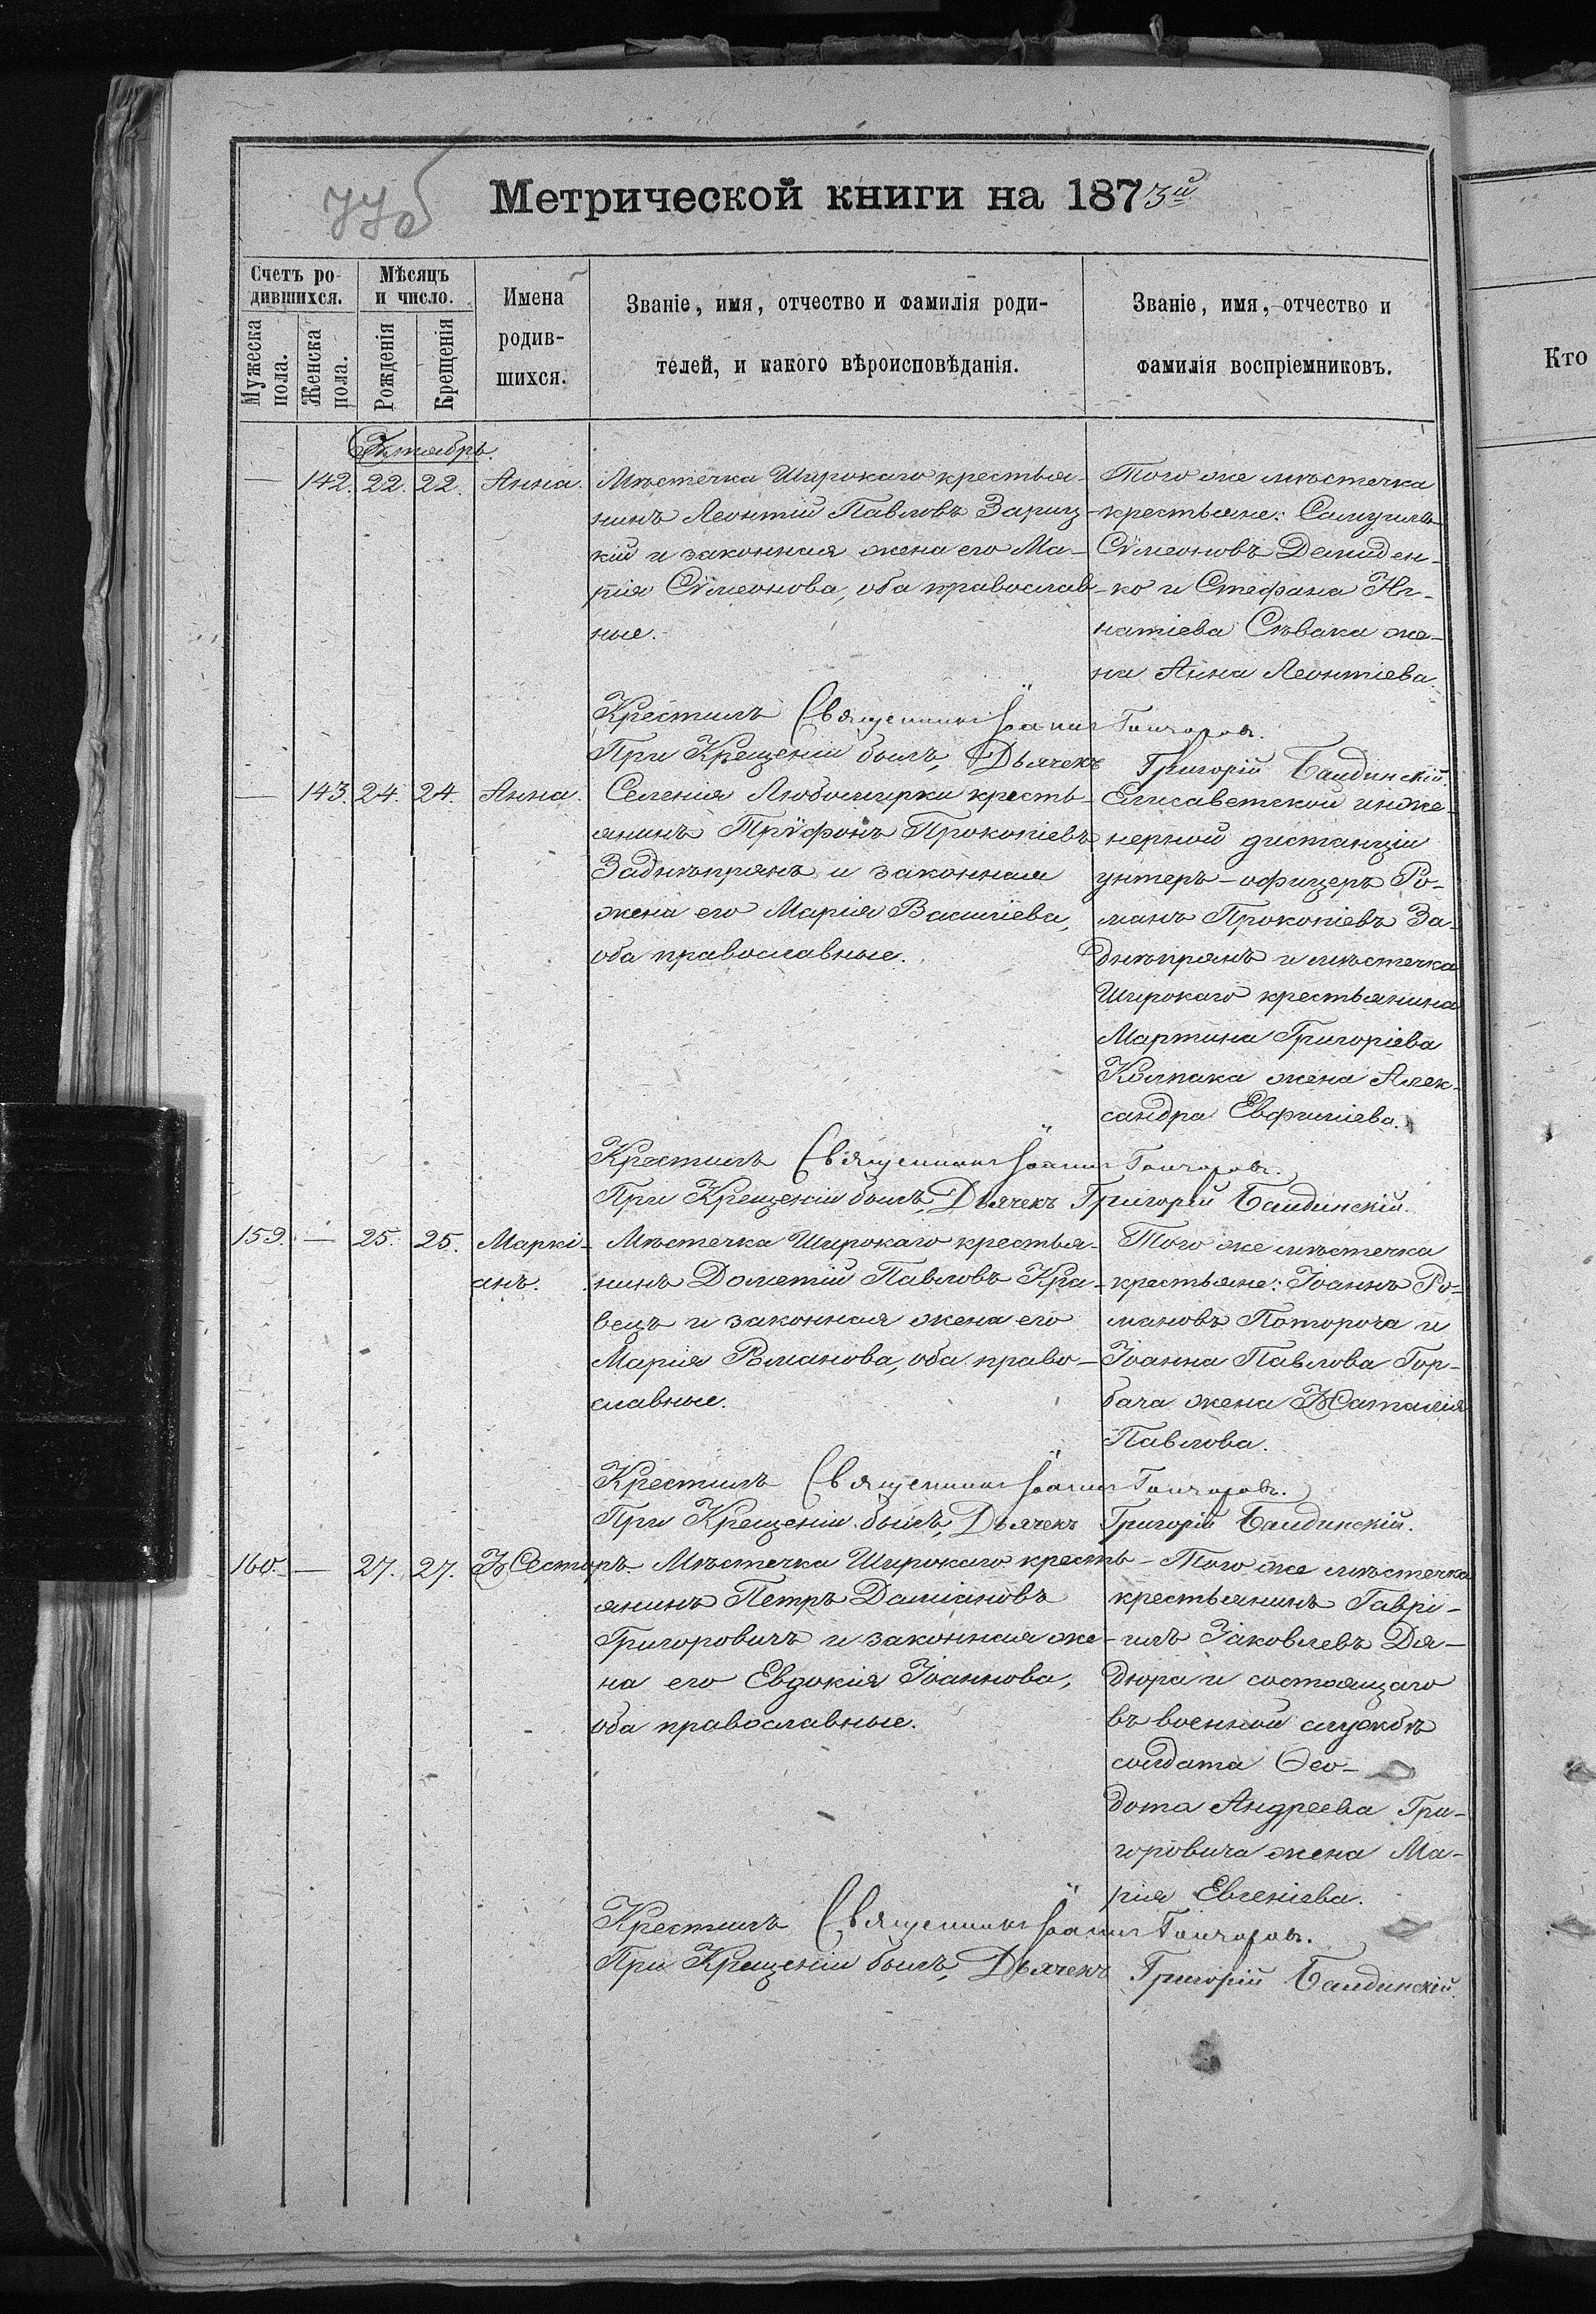 Метрической книги на 1873й
Счетъ ро-
дившихся.
Мужеска
пола.
Женска
пола.
Мѣсяцъ
и число.
Рожденія
Крещенія
Имена
родив-
шихся.
Званіе, имя, отчество и фамилія роди-
телей, и какого вѣроисповѣданія.
Званіе, имя, отчество и
фамилія воспріемниковъ.
Кто
Октябрь.
— 142. 22. 22. Анна.
Мѣстечка Широкаго крестья-
нинъ Леонтій Павловъ Зариц-
кій и законная жена его Ма-
рія Сѵмеонова, оба православ-
ные.
Того же мѣстечка
крестьяне: Самуилъ
Сѵмеоновъ Демиден-
ко и Стефана Иг-
натіева Сѣвака же-
на Анна Леонтіева
Крестилъ Священникъ Іоаннъ Гончаровъ.
При Крещеніи былъ, Дьячекъ Григорій Балдинскій.
— 143. 24. 24. Анна.
Селенія Любомирки кресть-
янинъ Трѵфонъ Прокопіевъ
Заднѣпрянъ и законная
жена его Марія Василіева,
оба православные.
Елисаветской инже-
нерной дистанціи
унтеръ-офицеръ Ро-
манъ Прокопіевъ За-
днѣпрянъ и мѣстечка
Широкаго крестьянина
Мартина Григоріева
Колпака жена Алек-
сандра Евфиміева.
Крестилъ Священникъ Іоаннъ Гончаровъ.
При Крещеніи былъ, Дьячекъ Григорій Балдинскій.
159. — 25. 25. Маркі-
анъ.
Мѣстечка Широкаго крестья-
нинъ Дометій Павловъ Кра-
вецъ и законная жена его
Марія Романова, оба право-
славные.
Того же мѣстечка
крестьяне: Іоаннъ Ро-
мановъ Потороча и
Іоанна Павлова Гор-
бача жена Наталія
Павлова.
Крестилъ Священникъ Іоаннъ Гончаровъ.
При Крещеніи былъ, Дьячекъ Григорій Балдинскій.
160. — 27. 27. Несторъ.
Мѣстечка Широкаго кресть-
янинъ Петръ Даміановъ
Григоровичъ и законная же-
на его Евдокія Іоаннова,
оба православные.
Того же мѣстечка
крестьянинъ Гаврі-
илъ Іаковлевъ Дя-
дюра и состоящаго
въ военной службѣ
солдата Ѳео-
дота Андреева Гри-
горовича жена Ма-
рія Евгеніева.
Крестилъ Священникъ Іоаннъ Гончаровъ.
При Крещеніи былъ, Дьячекъ Григорій Балдинскій.